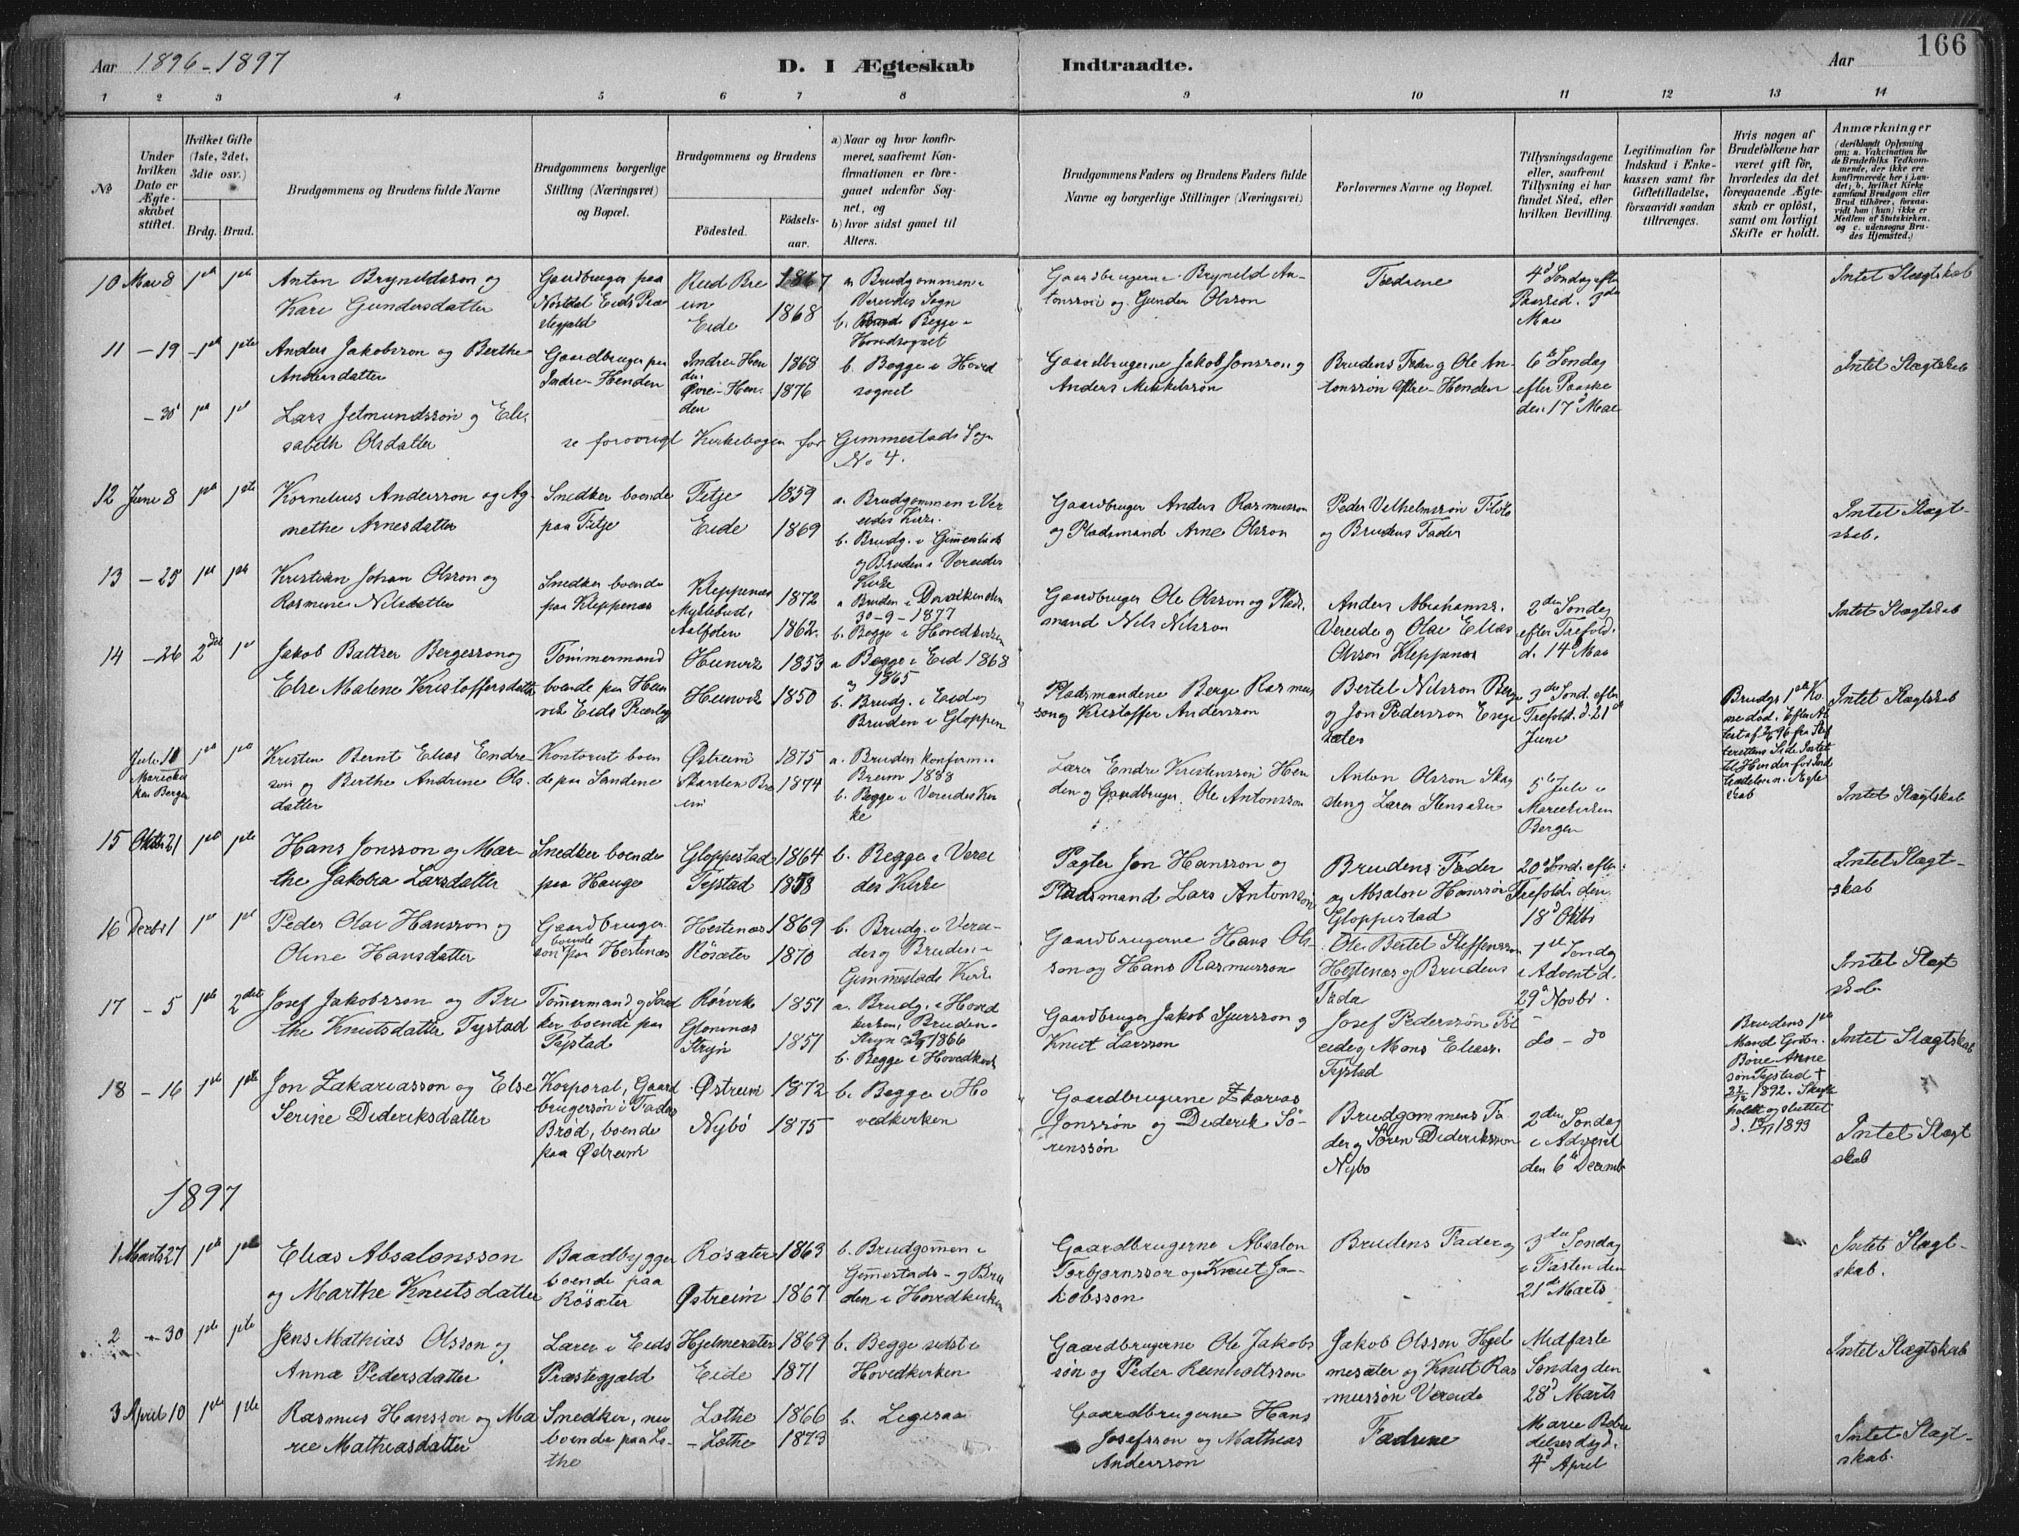 166
Aar 1896-1897
D. I Ægteskab Indtraadte.
Aar
1 2 3 4 5 6 7 8 9 10 11 12 13 14
No
Under hvilken Dato er Ægteskabet stiftet.
Hvilket Gifte (1ste, 2det, 3die osv.)
Brdg. Brud.
Brudgommens og Brudens fulde Navne
Brudgommens borgerlige Stilling (Næringsvei) og Bopæl.
Brudgommens og Brudens
Födested.
Födselsaar.
a) Naar og hvor konfirmeret, saafremt Konfirmationen er foregaaet udenfor Sognet, og
b) hvor sidst gaaet til Alters.
Brudgommens Faders og Brudens Faders fulde Navne og borgerlige Stillinger (Næringsvei)
Forlovernes Navne og Bopæl.
Tillysningsdagene eller, saafremt Tillysning ei har fundet Sted, efter hvilken Bevilling.
Legitimation for Indskud i Enkekassen samt for Giftetilladelse, forsaavidt saadan tiltrænges.
Hvis nogen af Brudefolkene har været gift för, hvorledes da det foregaaende Ægteskab er oplöst, samt om lovligt Skifte er holdt.
Anmærkninger (deriblandt Oplysning om: a. Vakcination for de Brudefolks Vedkommende, der ikke ere konfirmerede her i Landet; b. hvilket Kirkesamfund Brudgom eller Brud tilhörer, forsaavidt han (hun) ikke er Medlem af Statskirken, og c. udensogns Brudes Hjemsted.)
10 Mai 8 1ste 1ste
Anton Bryneldsson og
Kari Gundersdatter
Gaardbruger paa
Nöstdal Eids Præ
stegjæld
Rud Bre
um
Eide
1867
1868
a Brudgommen i
Vereides Sogn
b. Begge i
Hovedsognet
Gaardbrugerne Bryneld An-
tonssön og Gunder Olsson
Fædrene
4de Søndag efter
Paaske d. 3die
Mai
Intet Slægtskab
11 - 19 1ste 1ste
Anders Jakobsson og Berthe
Andersdatter
Gaardbruger paa
Indre-Henden
Indre Hen
den
Øvre-Hen-
den
1868
1876
b. Begge i Hoved
sognet
Gaardbrugerne Jakob Jonsson og
Anders Mikkelsön
Brudens Fader og Ole An-
tonssön Ytre-Henden
6te Søndag
efter Paaske
den 17de Mai
Intet Slægtskab
- 30 1ste 1ste
Lars Jetmundssön og Eli-
sabeth Olsdatter
se forøvrigt Kirkebogen for Gimmestads Sogn
No 4.
12 Juni 8 1ste 1ste
Kornelius Andersson og Ag-
nethe Arnesdatter
Snedker boende
paa Fitje
Fitje
Eide
1859
1869
a. Brudgommen i Ver
eides Kirke.
b. Brudg. i Gimmestads
og Bruden i Vereides
Kirke
Gaardbruger Anders Rasmusson
og Pladsmand Arne Olsson
Peder Vilhelmssön
og Brudens Fader
Intet Slægt-
skab.
13 - 25 1ste 1ste
Kristian Johan Olsson og
Rasmine Nilsdatter
Snedker boende
paa Kleppenæs
Kleppenæs
Myklebust,
Aalfoten
1872
1862.
a Bruden i Daviken den
30-9-1877
b. Begge i Hovedkirken
Gaardbruger Ole Olsson og Plads-
mand Nils Nilsson
Anders Abrahams.
Vereide og Olai Elias
Olsson Kleppenæs
2den Søndag
efter Trefold.
d. 14de
Intet Slægtskab
14 - 26 2det 1ste
Jakob Baltser Bergesson og
Else Malene Kristoffersdatter
Tømmermand
boende paa Hun
vik Eids Præstegj
Hunvik
Hunvik
1853
1850
a Begge i Eid 1868
og 1865
b. Brudg. i Eid og
Bruden i Gloppen
Pladsmændene Berge Rasmus
son og Kristoffer Andersson
Bertel Nilsson Berge
og Jon Pedersson Enge
3die Sönd. efter
Trefold. d. 21de
Juni
Intet Slægtskab
Juli 10
Mariekir
ken Bergen
1ste 1ste
Kristen Bernt Elias Endre-
son og Berthe Andrine Ols-
datter
Kontorist boen
de paa Sandene
Østreim
Skarsten Bre
um
1875
1874
a. Bruden konfirm. i
Breim 1888
b. Begge i Vereides Kir
ke
Lærer Endre Kristenssön Hen
den og Gaardbruger Ole Antonsson
Anton Olsson
den og Lærer
5te Juli i
Mariekirken
Bergen
Intet Slægtskab
15 Oktbr 21 1ste 1ste
Hans Jonsson og Mar-
the Jakoba Larsdatter
Snedker boende
paa Hauge
Gloppestad
Tystad
1864
1858
b. Begge i Verei
des Kirke
Pagter Jon Hansson og
Pladsmand Lars Antonsson
Brudens Fader
og Absalon Hanssön
Gloppestad
20de Sönd. efter
Trefold. den
18de Oktbr
Intet Slægt-
skab
16 Decbr 1 1ste 1ste
Peder Olai Hansson og
Oline Hansdatter
Gaardbruger
boende
paa Hestenæs
Hestenæs
Rösæter
1869
1870
b. Brudg. i Verei-
des og Bruden i
Gimmestads Kirke
Gaardbrugerne Hans Ols-
son og Hans Rasmusson
Ole Bertel Steffensson
Hestenæs og Brudens
Fader
1ste Søndag
i Advent d.
29de Novbr.
Intet Slægt
skab
17 - 5 1ste 2det
Josef Jakobsson og Bri
the Knutsdatter Tystad
Tømmermand og Sned
ker boende paa
Tystad
Rørvik
Glomnæs
Stryn
1851
1851
a. Brudg. i Hoved
kirken, Bruden i
Stryn 1866
b. Begge i Hovedkirk
Gaardbruger Jakob Sjursson og
Knut Larsson
Josef Pederssön
og Mons Eliass.
Tystad
do - do
Intet Slægtskab
18 - 16 1ste 1ste
Jon Zakariasson og Else
Serine Dideriksdatter
Korporal, Gaard
brugersön i Faders
Brød, boende
paa Østreim
Østreim
Nybö
1872
1875
b. Begge i Ho
vedkirken
Gaardbrugerne Zkarias
Jonssön og Diderik Sö-
renssön
Brudgommens Fa-
der og Søren Dideriksson
Nybö
2den Søndag
i Advent
den 6te Decemb
Intet Slægt
skab
1897
1 Marts 27 1ste 1ste
Elias Absalonsson
og Marthe Knutsdatter
Baadbygger
boende paa
Rösæter
Rösæter
Østreim
1863
1867
b. Brudgommen i
Gimmestads- og Bru
den i Hovedkirken
Gaardbrugerne Absalon
Torbjørnssön og Knut Ja-
kobsson
Brudens Fader og
3die Søndag
i Fasten den
21de Marts
Intet Slægt-
skab.
2 - 30 1ste 1ste
Jens Mathias Olsson og
Anna Pedersdatter
Lærer i Eids
Præstegjæld
Hjelmesæter
Eide
1869
1871
b. Begge sidst i
Hovedkirken
Gaardbrugerne Ole Jakobs
sön og Peder Reinholtsson
Jakob Olsson Hjel
mesæter og Knut Ras
mussön Vereide
Midfaste
Søndag den
28de Marts
Intet Slægtskab
3 April 10 1ste 1ste
Rasmus Hansson og Ma
rie Mathiasdatter
Snedker, nu
boende paa Lo-
the
Lothe
- Lothe
1866
1873
b. Ligesaa
Gaardbrugerne Hans
Josefsson og Mathias
Andersson
Fædrene
Marie Bebu
delses dag d.
4de April
Intet Slægt-
skab.